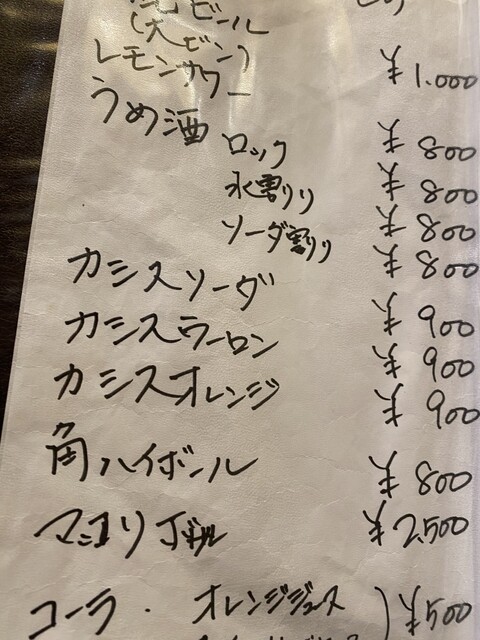 ビール
(大ビン) ¥1.000
レモンサワー ¥800
うめ酒 ロック ¥800
水割り ¥800
ソーダ割り ¥800
カシスソーダ ¥900
カシスウーロン ¥900
カシスオレンジ ¥900
角ハイボール ¥800
マッコリ ボトル ¥2.500
コーラ ・ オレンジジュース ( ¥500